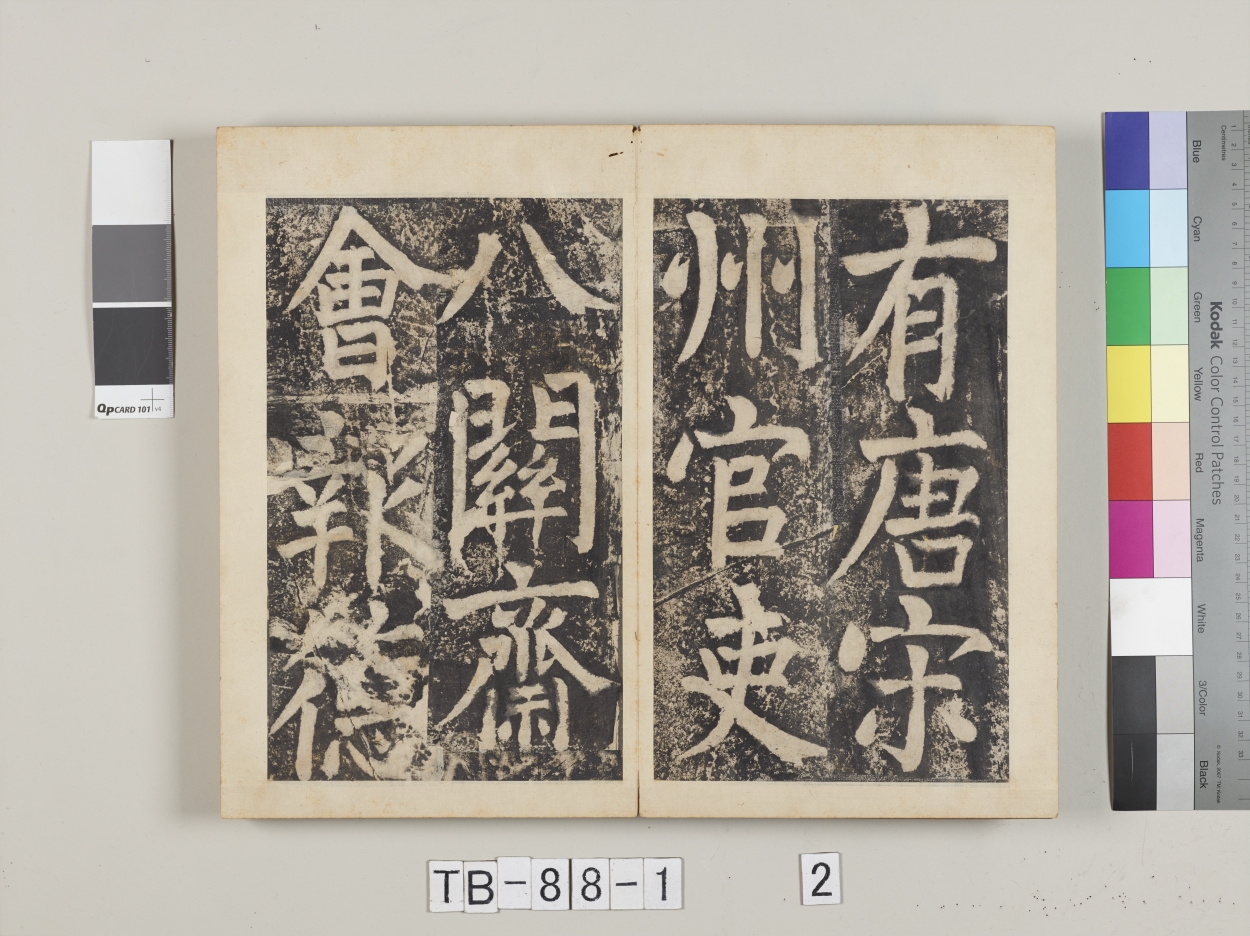 有唐宋
州官吏
八關齋
會報德
QpCARD 101 v4
Kodak Color Control Patches
Blue
Cyan
Green
Yellow
Red
Magenta
White
3/Color
Black
Centimetres
TB-88-1
2